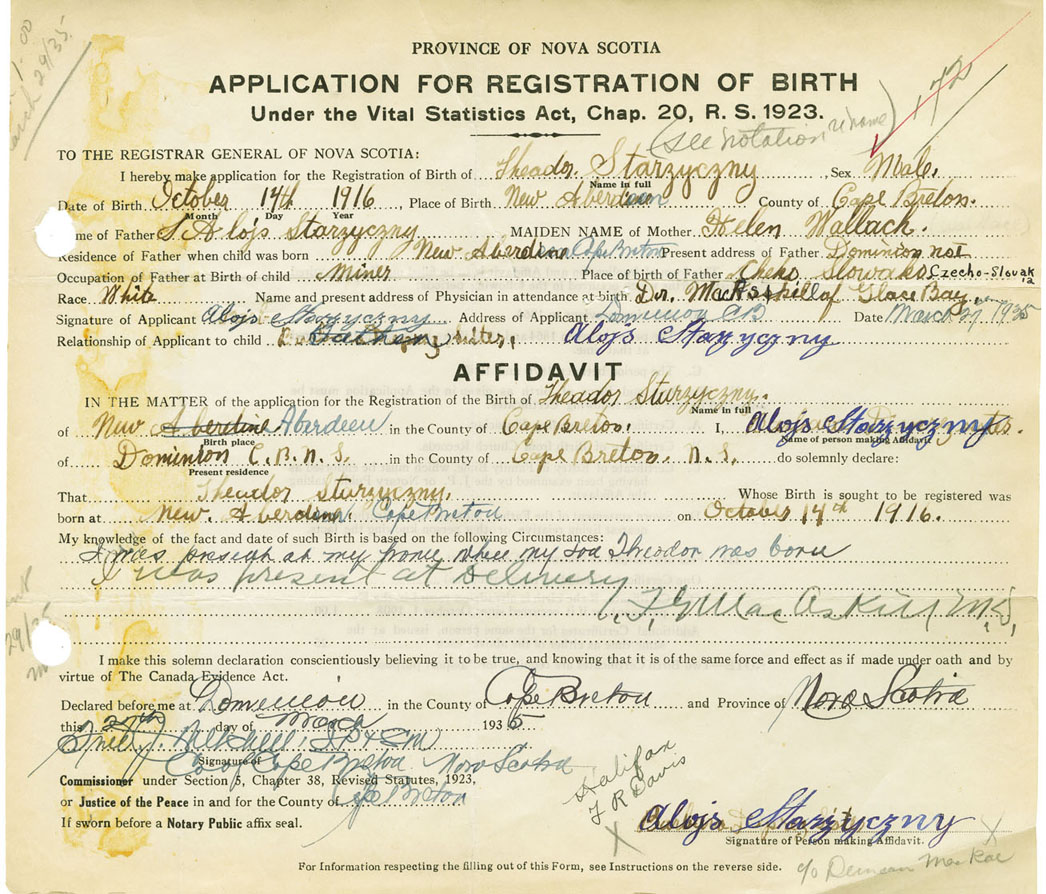 PROVINCE OF NOVA SCOTIA
APPLICATION FOR REGISTRATION OF BIRTH
Under the Vital Statistics Act, Chap. 20, R. S. 1923.
(see notation re name) 172
TO THE REGISTRAR GENERAL OF NOVA SCOTIA:
I hereby make application for the Registration of Birth of Theador Starzyczny Sex Male.
Name in full
Date of Birth October 14th 1916, Place of Birth New Aberdeen County of Cape Breton.
Month Day Year
Name of Father Alojs Starzyczny MAIDEN NAME of Mother Helen Wallach.
Residence of Father when child was born New Aberdeen Cape Breton Present address of Father Dominion
Occupation of Father at Birth of child Miner Place of birth of Father Cheko Slowako Czecho-Slovakia
Race White Name and present address of Physician in attendance at birth Dr. MacAskill of Glace Bay.
Signature of Applicant Alojs Starzyczny Address of Applicant Dominion CB Date March 27 1935
Relationship of Applicant to child Father Alojs Starzyczny
AFFIDAVIT
IN THE MATTER of the application for the Registration of the Birth of Theador Sturzyczny.
Name in full
of New Aberdine Aberdeen in the County of Cape Breton. I, Alojs Starzyczny
Birth place Name of person making Affidavit
of Dominion C.B. N.S. in the County of Cape Breton. N.S. do solemnly declare:
Present residence
That Theador Sturzyczny. Whose Birth is sought to be registered was
born at New. Aberdeen Cape Breton on October 14th 1916.
My knowledge of the fact and date of such Birth is based on the following Circumstances:
I was present at my home when my son Theodor was born
I was present at delivery
MacAskill M.D.
I make this solemn declaration conscientiously believing it to be true, and knowing that it is of the same force and effect as if made under oath and by
virtue of The Canada Evidence Act.
Declared before me at Dominion in the County of Cape Breton and Province of Nova Scotia
this 27th day of March 1935
Signature of
Co of Cape Breton Nova Scotia
Commissioner under Section 5, Chapter 38, Revised Statutes, 1923,
or Justice of the Peace in and for the County of Cape Breton
If sworn before a Notary Public affix seal.
Halifax
F R Davis
Alojs Starzyczny
Signature of Person making Affidavit.
For Information respecting the filling out of this Form, see Instructions on the reverse side.
c/o Duncan MacRae